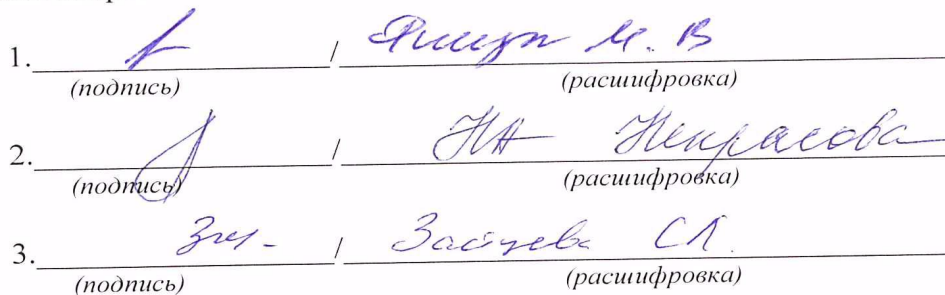 1. / М. В
(подпись) (расшифровка)
2. / НА Некрасова
(подпись) (расшифровка)
3. Зай- / Зайцева СЛ.
(подпись) (расшифровка)